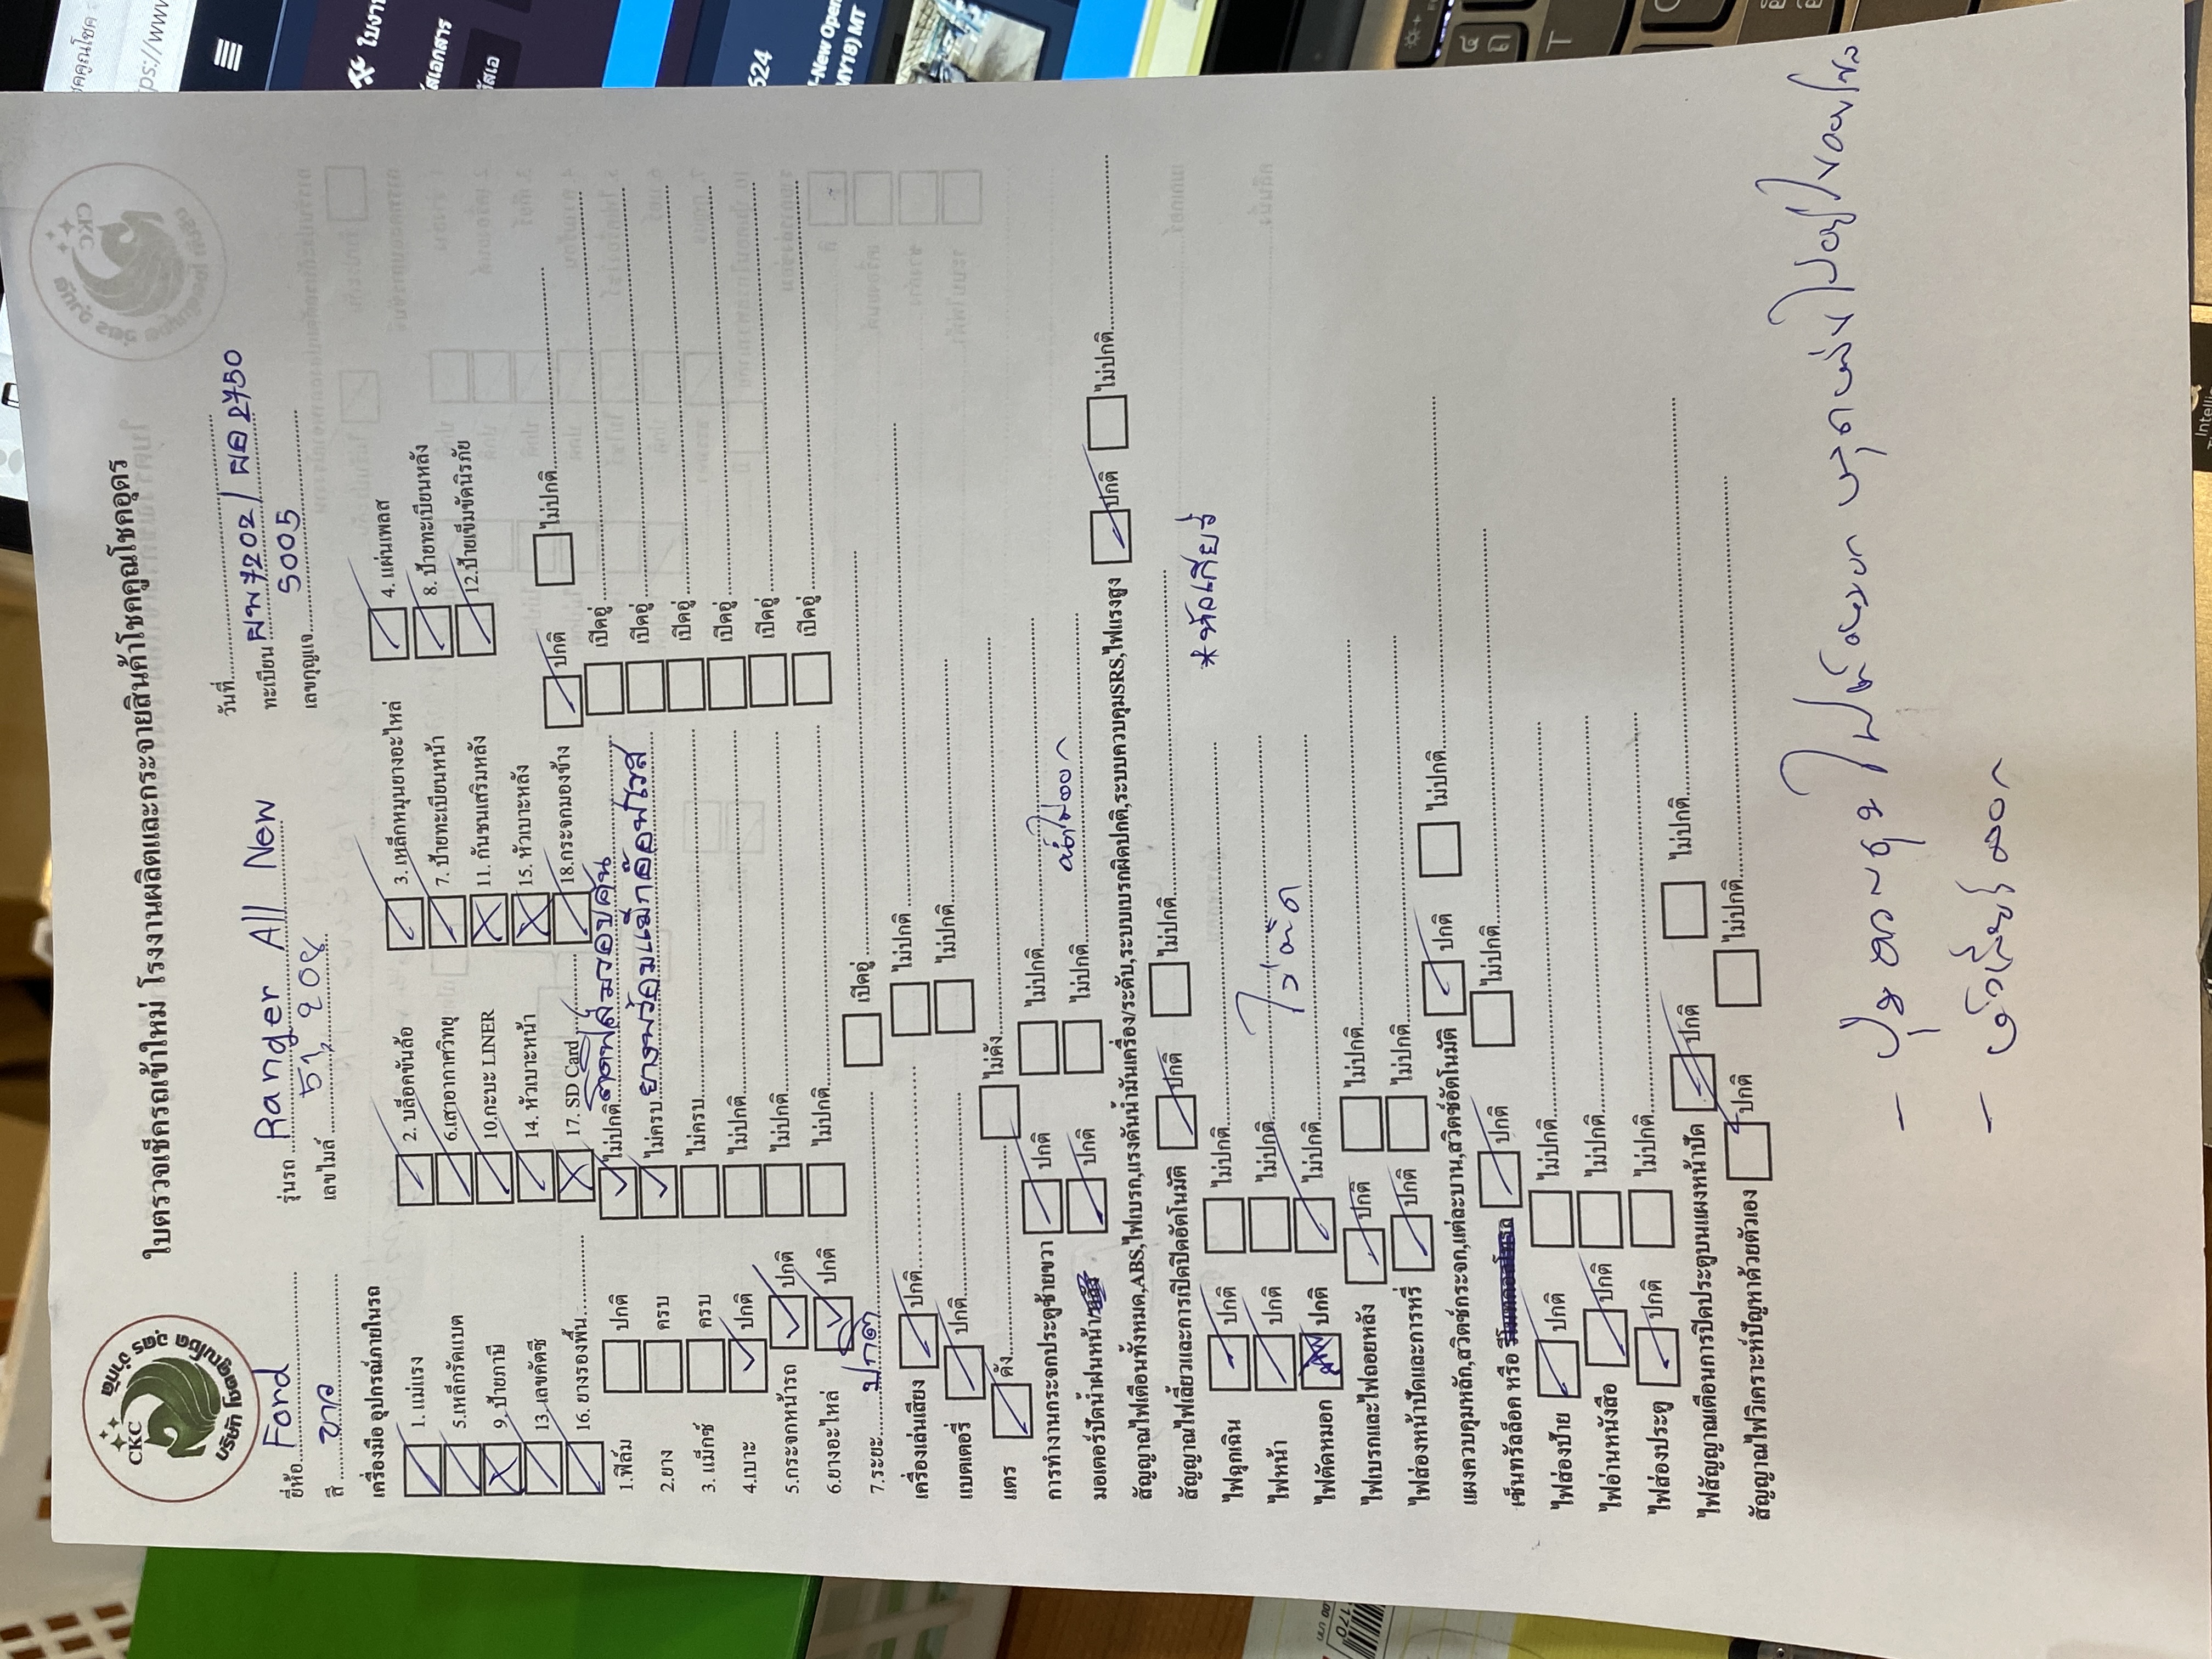 ใบตรวจเช็ครถเข้าใหม่ โรงงานผลิตและกระจายสินค้าโชคคูณโชคอุดร
CKC
บริษัท โชคคูณโชค อุดร จำกัด
วันที่
ยี่ห้อ Ford รุ่นรถ Ranger All New ทะเบียน ผพ 7202 / ผอ 2750
สี ขาว เลขไมล์ เลขกุญแจ 5005
เครื่องมือ อุปกรณ์ภายในรถ
1. แม่แรง 2. บล็อคขันล้อ 3. เหล็กหมุนยางอะไหล่ 4. แผ่นเพลส
5.เหล็กรัดแบต 6.เสาอากาศวิทยุ 7. ป้ายทะเบียนหน้า 8. ป้ายทะเบียนหลัง
9. ป้ายภาษี 10.กะบะ LINER 11. กันชนเสริมหลัง 12.ป้ายเข็มขัดนิรภัย
13. เลขคัตซี 14. หัวเบาะหน้า 15. หัวเบาะหลัง
16. ยางรองพื้น 17. SD Card 18.กระจกมองข้าง ปกติ ไม่ปกติ
1.ฟิล์ม ปกติ ไม่ปกติ ติดฟิล์มรอบคัน เปิดอู่
2.ยาง ครบ ไม่ครบ ยางพร้อมแม็กอ๊อฟโรส เปิดอู่
3. แม็กซ์ ครบ ไม่ครบ เปิดอู่
4.เบาะ ปกติ ไม่ปกติ เปิดอู่
5.กระจกหน้ารถ ปกติ ไม่ปกติ เปิดอู่
6.ยางอะไหล่ ปกติ ไม่ปกติ เปิดอู่
7.ระยะ ปกติ เปิดอู่
เครื่องเล่นเสียง ปกติ ไม่ปกติ
แบตเตอรี่ ปกติ ไม่ปกติ
แตร ดัง ไม่ดัง
การทำงานกระจกประตูซ้ายขวา ปกติ ไม่ปกติ
มอเตอร์ปัดน้ำฝนหน้า ปกติ ไม่ปกติ
สัญญาณไฟเตือนทั้งหมด,ABS,ไฟเบรก,แรงดันน้ำมันเครื่อง/ระดับ,ระบบเบรกผิดปกติ,ระบบควบคุมSRS,ไฟแรงสูง ปกติ ไม่ปกติ
สัญญาณไฟเลี้ยวและการเปิดปิดอัตโนมัติ ปกติ ไม่ปกติ
ไฟฉุกเฉิน ปกติ ไม่ปกติ *หัวเกียร์
ไฟหน้า ปกติ ไม่ปกติ
ไฟตัดหมอก ปกติ ไม่ปกติ ไม่ติด
ไฟเบรกและไฟถอยหลัง ปกติ ไม่ปกติ
ไฟส่องหน้าปัดและการหรี่ ปกติ ไม่ปกติ
แผงควบคุมหลัก,สวิตช์กระจก,แต่ละบาน,สวิตช์อัตโนมัติ ปกติ ไม่ปกติ
เซ็นทรัลล็อค หรือ ปกติ ไม่ปกติ
ไฟส่องป้าย ปกติ ไม่ปกติ
ไฟอ่านหนังสือ ปกติ ไม่ปกติ
ไฟส่องประตู ปกติ ไม่ปกติ
ไฟสัญญาณเตือนการปิดประตูบนแผงหน้าปัด ปกติ ไม่ปกติ
สัญญาณไฟวิเคราะห์ปัญหาด้วยตัวเอง ปกติ ไม่ปกติ